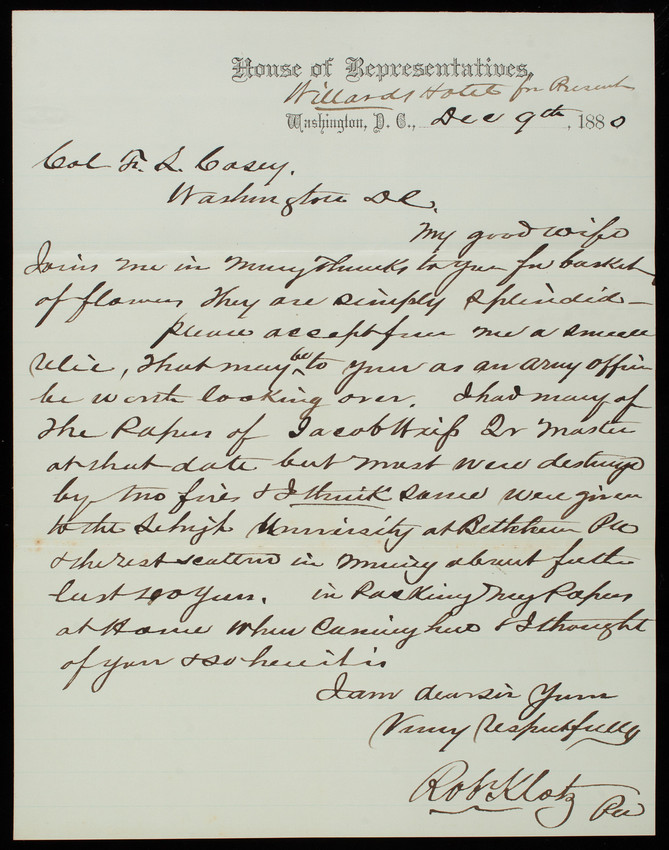 House of Representatives,
Willards Hotel for Present
Washington, D. C., Dec 9th, 1880
Col T. L. Casey.
Washington DC.
My good wife
Joins me in many thanks to you for basket
of flowers They are simply splendid –
please accept from me a small
relic, that may be to your as an army officer
be worth looking over. I had many of
the Papers of Jacob Weiss Qr Master
at that date but most were destroyed
by two fires & I think some were given
to the Lehigh University at Bethlehem Pa
& the rest scattered in many about for the
last 100 years. in Packing my Papers
at Home when Coming here & I thought
of your & so here it is
I am dear sir Yours
Very respectfully
Rob Klotz
Pa